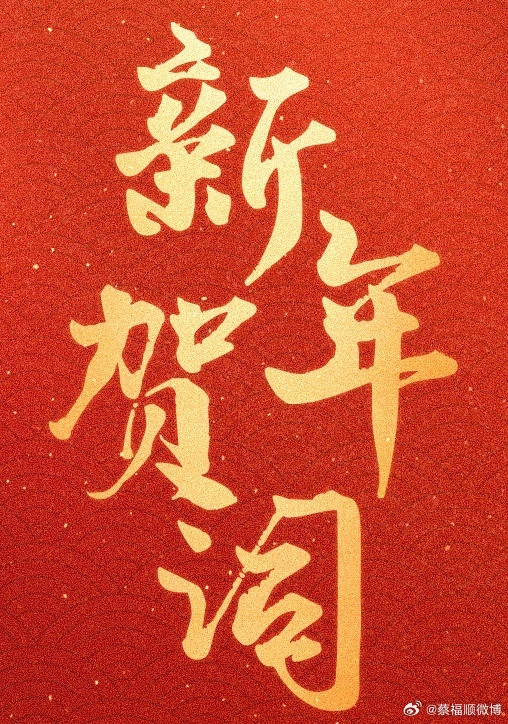 新年
贺词
@蔡福顺微博